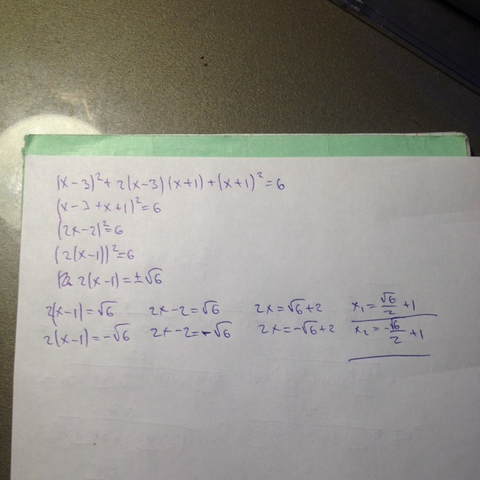 (x-3)²+2(x-3)(x+1)+(x+1)²=6
(x-3+x+1)²=6
(2x-2)²=6
(2(x-1))²=6
2(x-1)=±√6
2(x-1)=√6 2x-2=√6 2x=√6+2 x₁=√6/2+1
2(x-1)=-√6 2x-2=-√6 2x=-√6+2 x₂=-√6/2+1